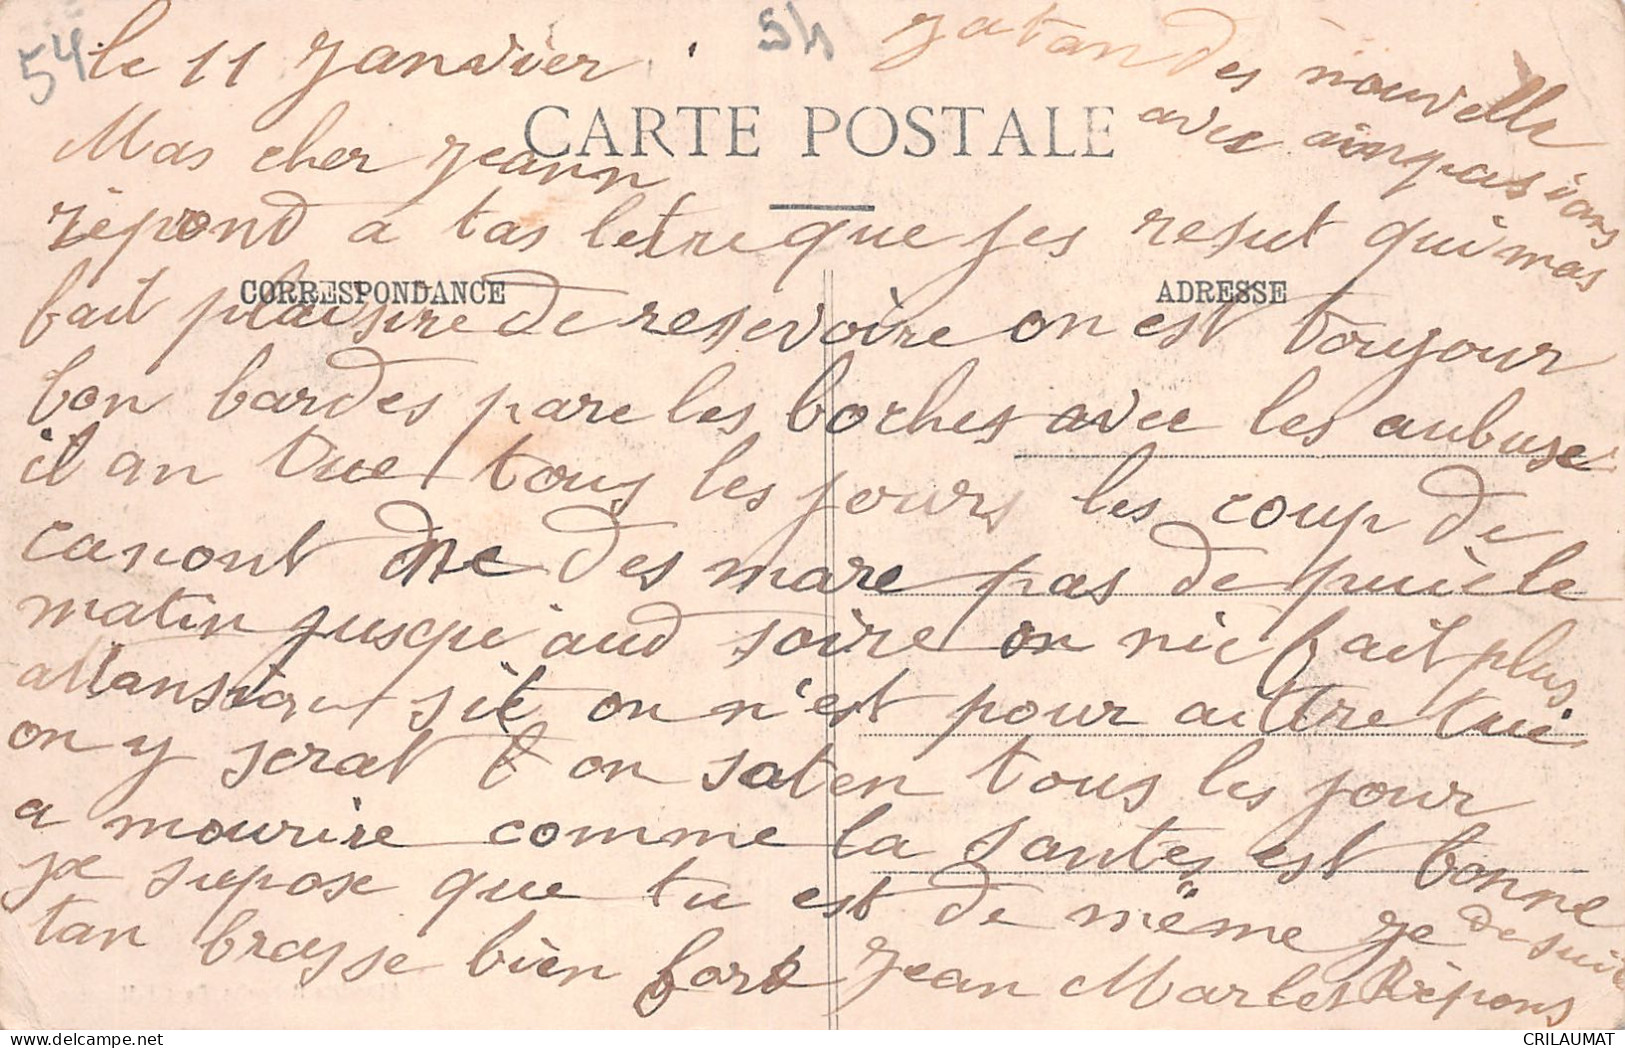 54
54
le 11 Janvier
CARTE POSTALE
Mas cher Jeann
répond a tas letre que jes resut qui mas
CORRESPONDANCE
ADRESSE
fait plaisire de resevoire on est toujour
bon bardes pare les boches avec les aubuse
il an tue tous les jours les coup de
canont ne des mare pas de puie le
matin jusqu'aud soire on nie fait plus
attansion sit on n'est pour aittre tuè
on y serat on saten tous les jour
a mourire comme la santes est bonne
je supose que tu est de même je
tan brasse bien fort Jean Marles Répons
de suite
Jatan des nouvelle
avec inpasians
CRILAUMAT